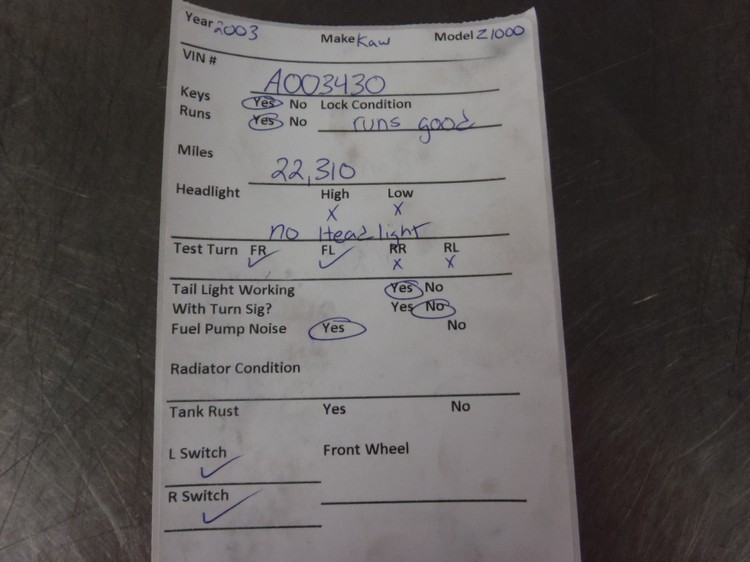 Year 2003 Make Kaw Model Z1000
VIN #
A003430
Keys Yes No Lock Condition
Runs Yes No runs good
Miles
22,310
Headlight High Low
X X
no Headlight
Test Turn FR FL RR RL
✓ ✓ X X
Tail Light Working Yes No
With Turn Sig? Yes No
Fuel Pump Noise Yes No
Radiator Condition
Tank Rust Yes No
L Switch Front Wheel
✓
R Switch
✓